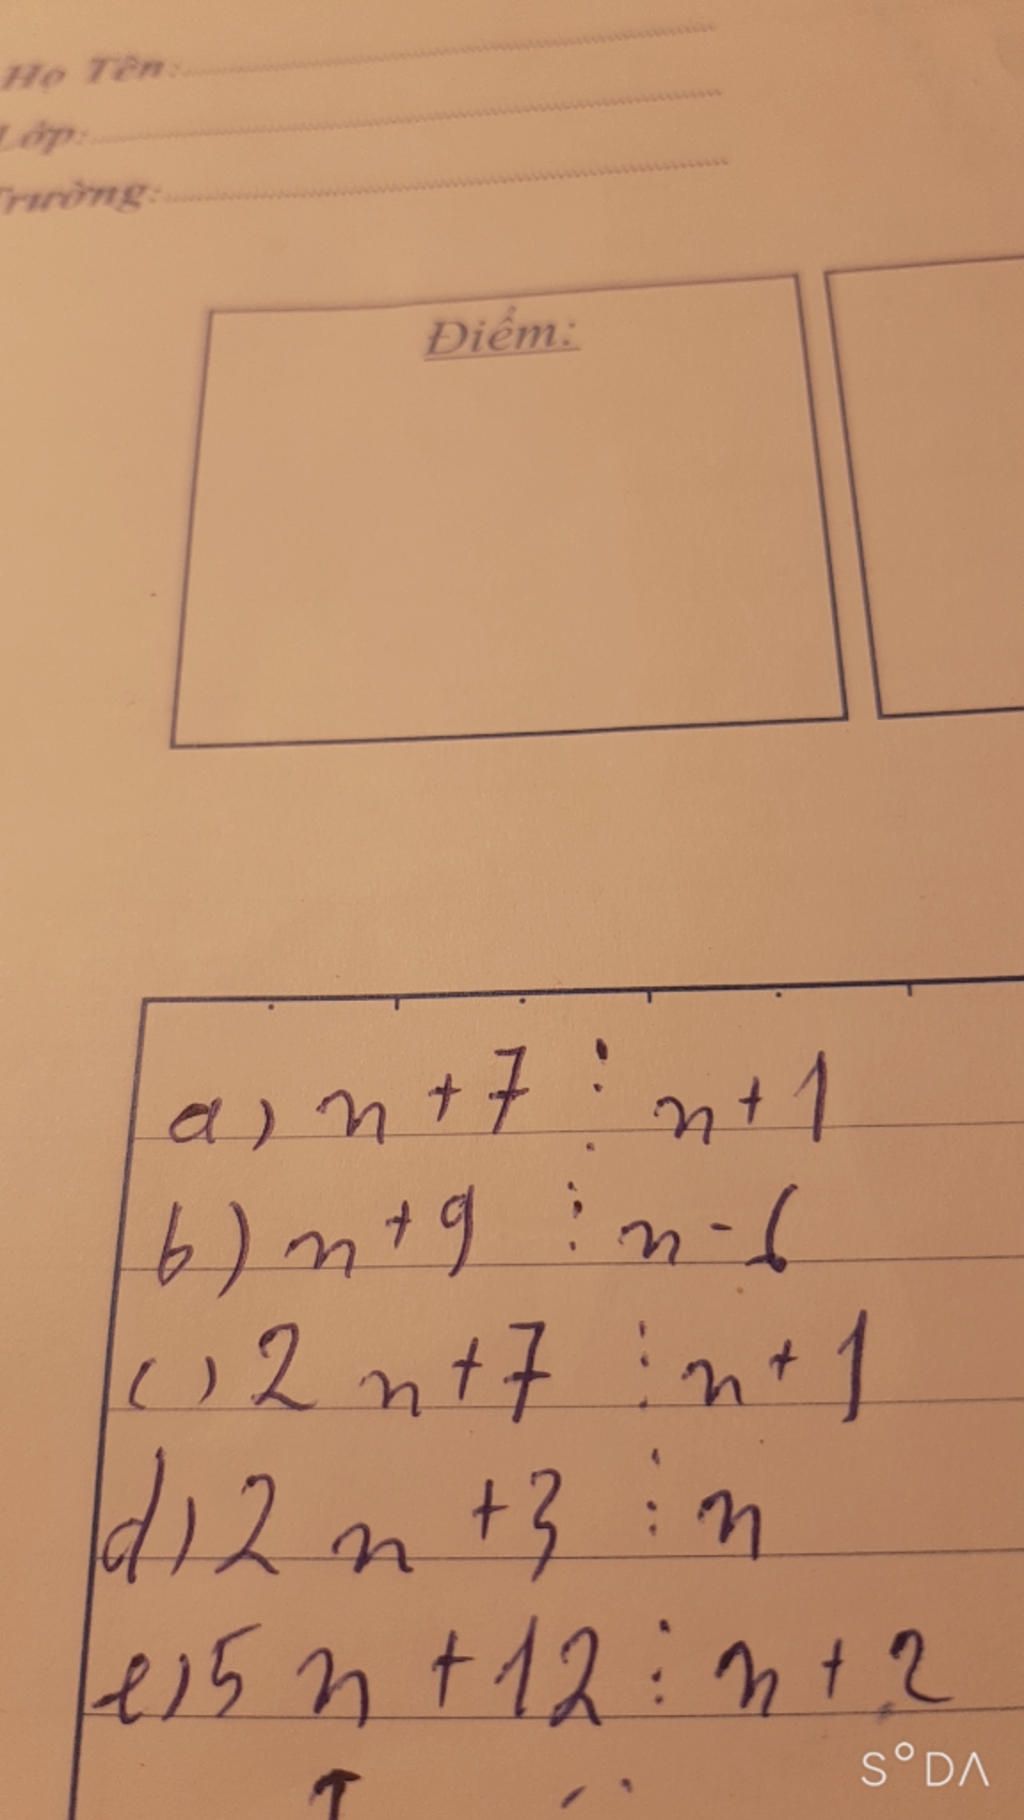 Họ Tên:
Lớp:
Trường:
Điểm:
a) n + 7 ⋮ n + 1
b) n + 9 ⋮ n - 6
c) 2 n + 7 ⋮ n + 1
d) 2 n + 3 ⋮ n
e) 5 n + 12 ⋮ n + 2
S°DA